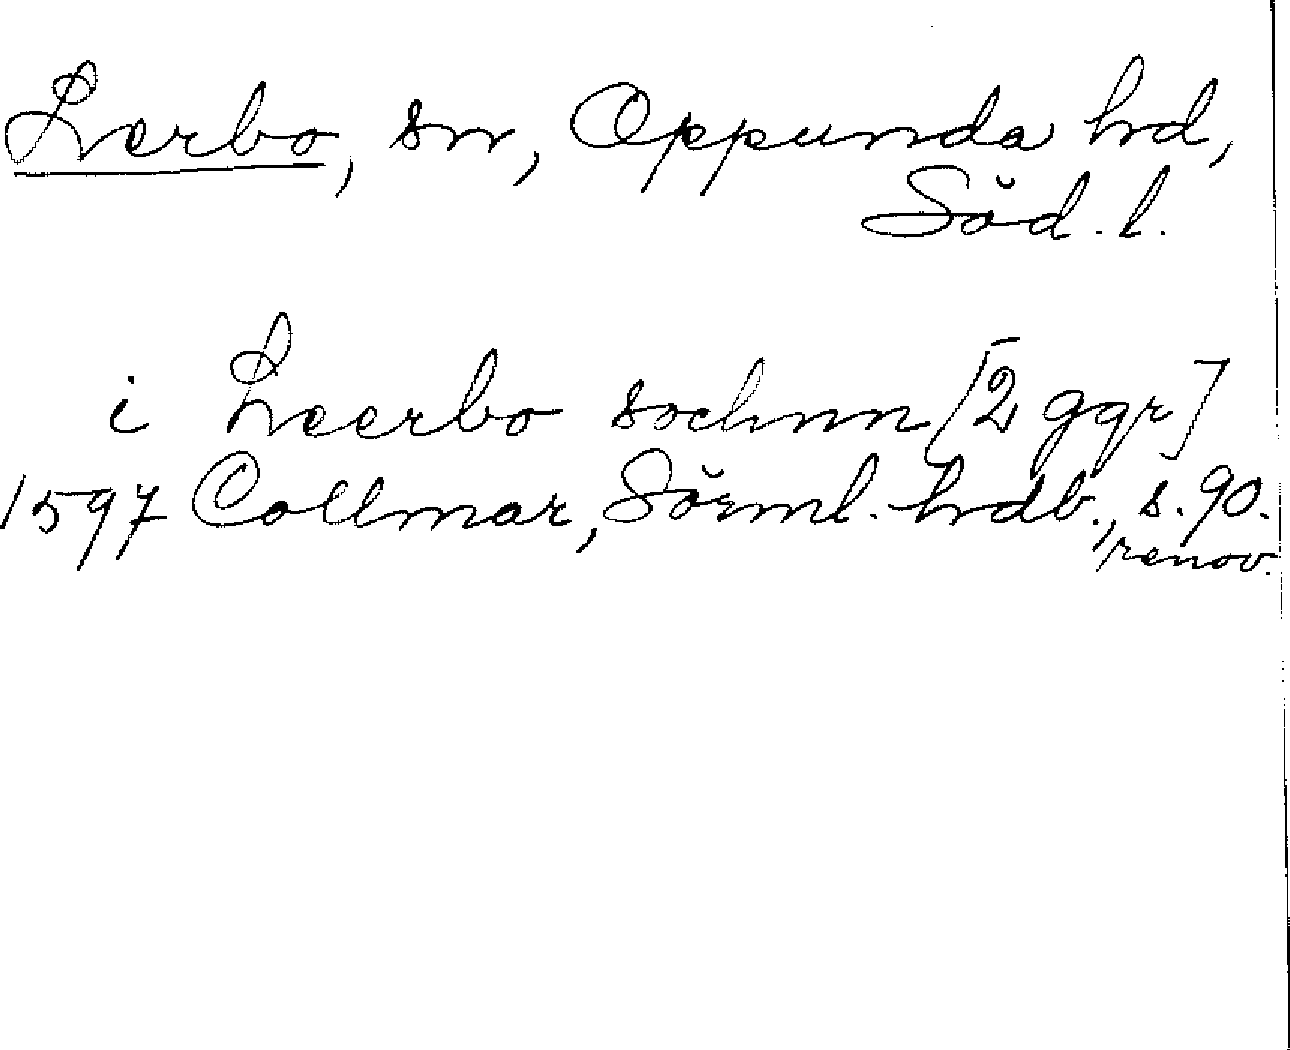 Lerbo, sn, Oppunda hd,
Söd. l.
i Leerbo sochnn [2 ggr]
1597 Collmar, Sörml. hdb., s. 90.
renov.